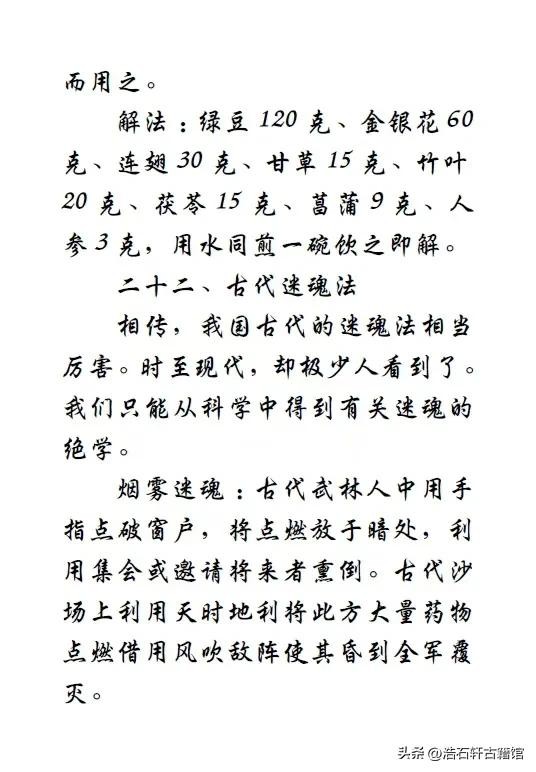 而用之。
解法：绿豆 120 克、金银花 60
克、连翅 30 克、甘草 15 克、竹叶
20 克、茯苓 15 克、菖蒲 9 克、人
参 3 克，用水同煎一碗饮之即解。
二十二、古代迷魂法
相传，我国古代的迷魂法相当
厉害。时至现代，却极少人看到了。
我们只能从科学中得到有关迷魂的
绝学。
烟雾迷魂：古代武林人中用手
指点破窗户，将点燃放于暗处，利
用集会或邀请将来者熏倒。古代沙
场上利用天时地利将此方大量药物
点燃借用风吹敌阵使其昏到全军覆
灭。
头条 @浩石轩古籍馆